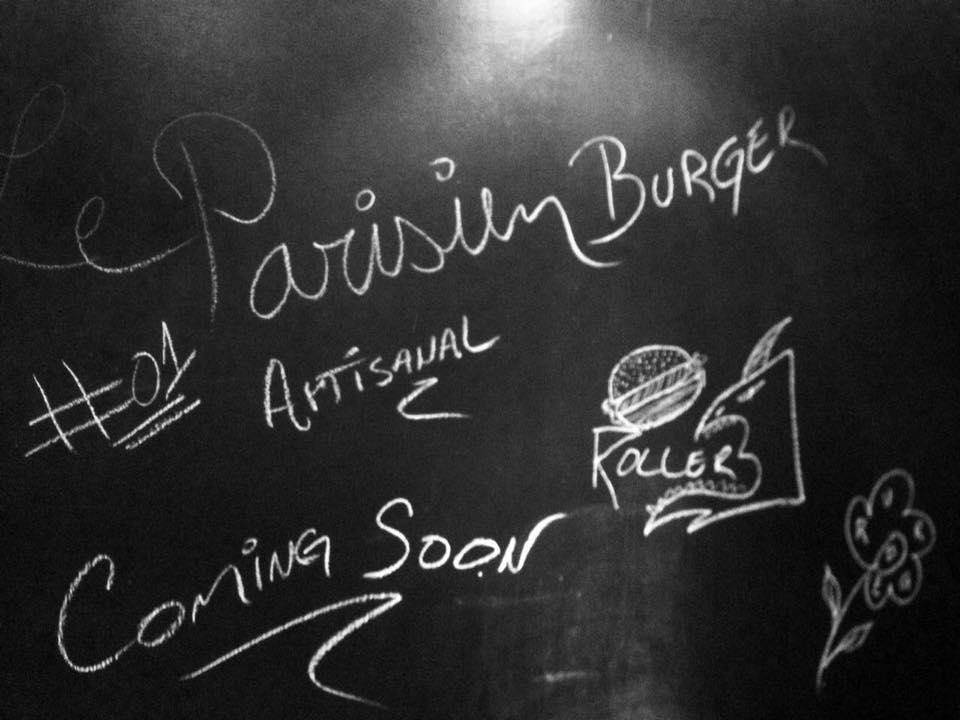 Le Parisien BURGER
#01 ARTISANAL
ROLLER
COMING SOON